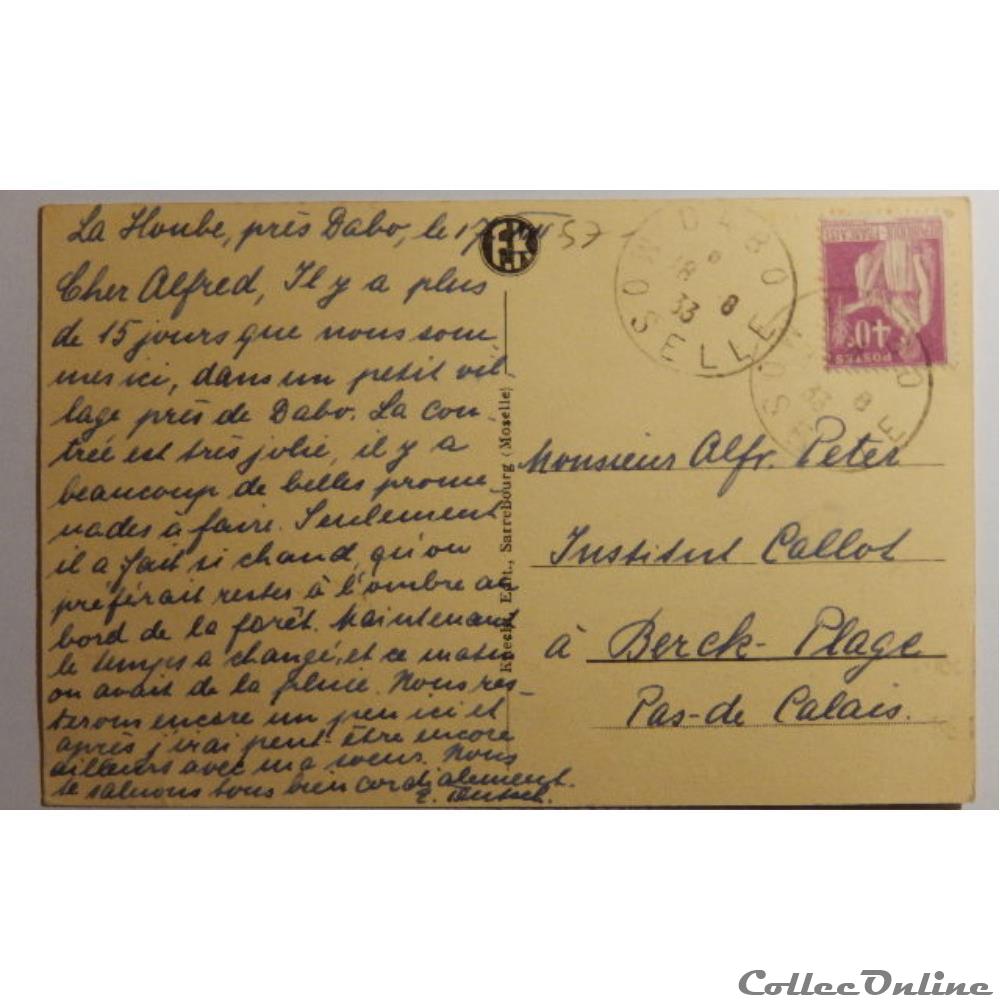 La Hoube, près Dabo, le 17 VIII 37
Cher Alfred, Il y a plus
de 15 jours que nous som
mes ici, dans un petit vil
lage près de Dabo. La con
trée est très jolie, il y a
beaucoup de belles prome
nades à faire. Seulement
il a fait si chaud, qu'on
préférait rester à l'ombre au
bord de la forêt. Maintenant
le temps a changé, et ce matin
on avait de la pluie. Nous res-
terons encore un peu ici et
après j'irai peut-être encore
ailleurs avec ma soeur. Nous
te saluons tous bien cordialement.
E.
Knecht, Edit., Sarrebourg (Moselle)
DABO
18 8
33
MOSELLE
REPUBLIQUE FRANÇAISE
POSTES
40c
33 8
Monsieur Alfr. Peter
Institut Callot
à Berck-Plage
Pas-de Calais.
CollecOnline